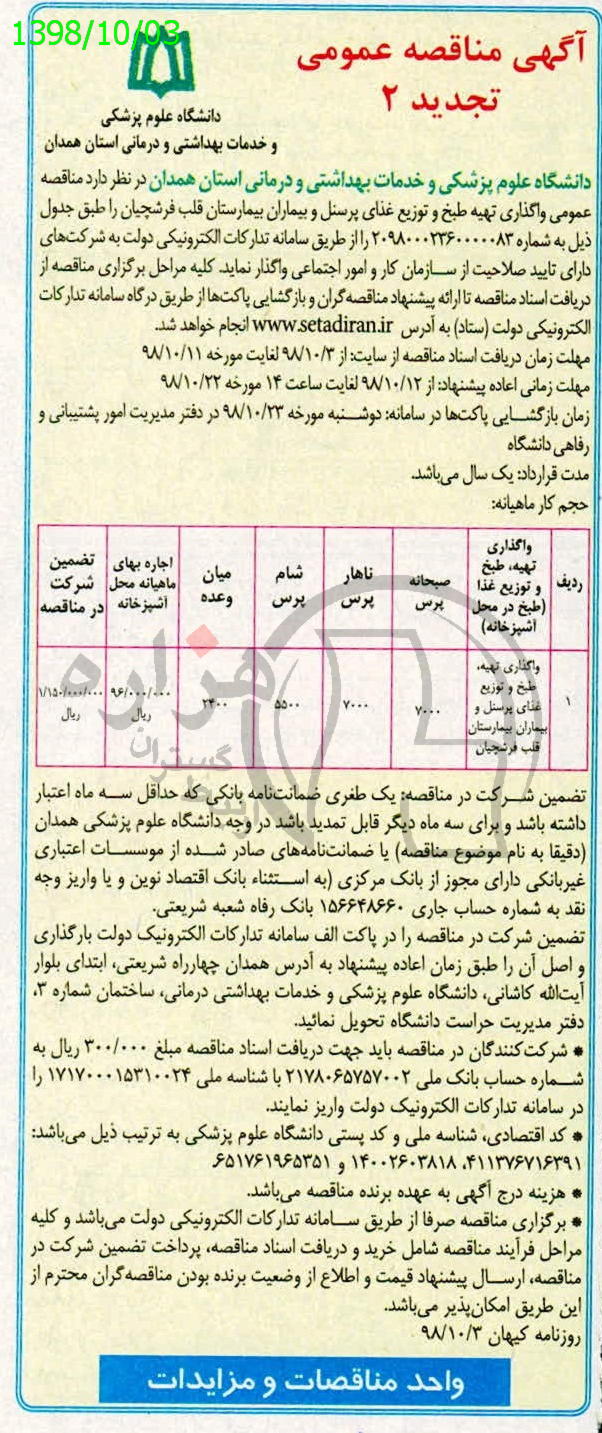 1398/10/03
آگهی مناقصه عمومی
تجدید ۲
دانشگاه علوم پزشکی
و خدمات بهداشتی و درمانی استان همدان
دانشگاه علوم پزشکی و خدمات بهداشتی و درمانی استان همدان در نظر دارد مناقصه
عمومی واگذاری تهیه طبخ و توزیع غذای پرسنل و بیماران بیمارستان قلب فرشچیان را طبق جدول
ذیل به شماره ۲۰۹۸۰۰۰۲۳۶۰۰۰۰۰۸۳ را از طریق سامانه تدارکات الکترونیکی دولت به شرکت‌های
دارای تایید صلاحیت از سازمان کار و امور اجتماعی واگذار نماید. کلیه مراحل برگزاری مناقصه از
دریافت اسناد مناقصه تا ارائه پیشنهاد مناقصه‌گران و بازگشایی پاکت‌ها از طریق درگاه سامانه تدارکات
الکترونیکی دولت (ستاد) به آدرس www.setadiran.ir انجام خواهد شد.
مهلت زمان دریافت اسناد مناقصه از سایت: از ۹۸/۱۰/۳ لغایت مورخه ۹۸/۱۰/۱۱
مهلت زمانی اعاده پیشنهاد: از ۹۸/۱۰/۱۲ لغایت ساعت ۱۴ مورخه ۹۸/۱۰/۲۲
زمان بازگشایی پاکت‌ها در سامانه: دوشنبه مورخه ۹۸/۱۰/۲۳ در دفتر مدیریت امور پشتیبانی و
رفاهی دانشگاه
مدت قرارداد: یک سال می‌باشد.
حجم کار ماهیانه:
ردیف
واگذاری
تهیه، طبخ
و توزیع غذا
(طبخ در محل
آشپزخانه)
صبحانه
پرس
ناهار
پرس
شام
پرس
میان
وعده
اجاره بهای
ماهیانه محل
آشپزخانه
تضمین
شرکت
در مناقصه
۱
واگذاری تهیه،
طبخ و توزیع
غذای پرسنل و
بیماران بیمارستان
قلب فرشچیان
۷۰۰۰
۷۰۰۰
۵۵۰۰
۲۴۰۰
۹۶/۰۰۰/۰۰۰
ریال
۱/۱۵۰/۰۰۰/۰۰۰
ریال
هزاره
گستران
تضمین شرکت در مناقصه: یک طغری ضمانت‌نامه بانکی که حداقل سه ماه اعتبار
داشته باشد و برای سه ماه دیگر قابل تمدید باشد در وجه دانشگاه علوم پزشکی همدان
(دقیقا به نام موضوع مناقصه) یا ضمانت‌نامه‌های صادر شده از موسسات اعتباری
غیربانکی دارای مجوز از بانک مرکزی (به استثناء بانک اقتصاد نوین و یا واریز وجه
نقد به شماره حساب جاری ۱۵۶۶۴۸۶۶۰ بانک رفاه شعبه شریعتی.
تضمین شرکت در مناقصه را در پاکت الف سامانه تدارکات الکترونیک دولت بارگذاری
و اصل آن را طبق زمان اعاده پیشنهاد به آدرس همدان چهارراه شریعتی، ابتدای بلوار
آیت‌الله کاشانی، دانشگاه علوم پزشکی و خدمات بهداشتی درمانی، ساختمان شماره ۳،
دفتر مدیریت حراست دانشگاه تحویل نمائید.
* شرکت‌کنندگان در مناقصه باید جهت دریافت اسناد مناقصه مبلغ ۳۰۰/۰۰۰ ریال به
شماره حساب بانک ملی ۲۱۷۸۰۶۵۷۵۷۰۰۲ با شناسه ملی ۱۷۱۷۰۰۰۱۵۳۱۰۰۲۴ را
در سامانه تدارکات الکترونیک دولت واریز نمایند.
* کد اقتصادی، شناسه ملی و کد پستی دانشگاه علوم پزشکی به ترتیب ذیل می‌باشد:
۴۱۱۳۷۶۷۱۶۳۹۱، ۱۴۰۰۲۶۰۳۸۱۸ و ۶۵۱۷۶۱۹۶۵۳۵۱.
* هزینه درج آگهی به عهده برنده مناقصه می‌باشد.
* برگزاری مناقصه صرفا از طریق سامانه تدارکات الکترونیکی دولت می‌باشد و کلیه
مراحل فرآیند مناقصه شامل خرید و دریافت اسناد مناقصه، پرداخت تضمین شرکت در
مناقصه، ارسال پیشنهاد قیمت و اطلاع از وضعیت برنده بودن مناقصه‌گران محترم از
این طریق امکان‌پذیر می‌باشد.
روزنامه کیهان ۹۸/۱۰/۳
واحد مناقصات و مزایدات